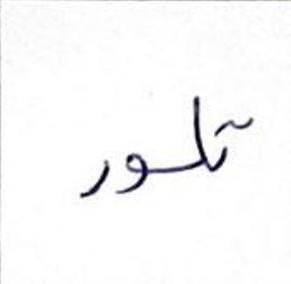 تلسور